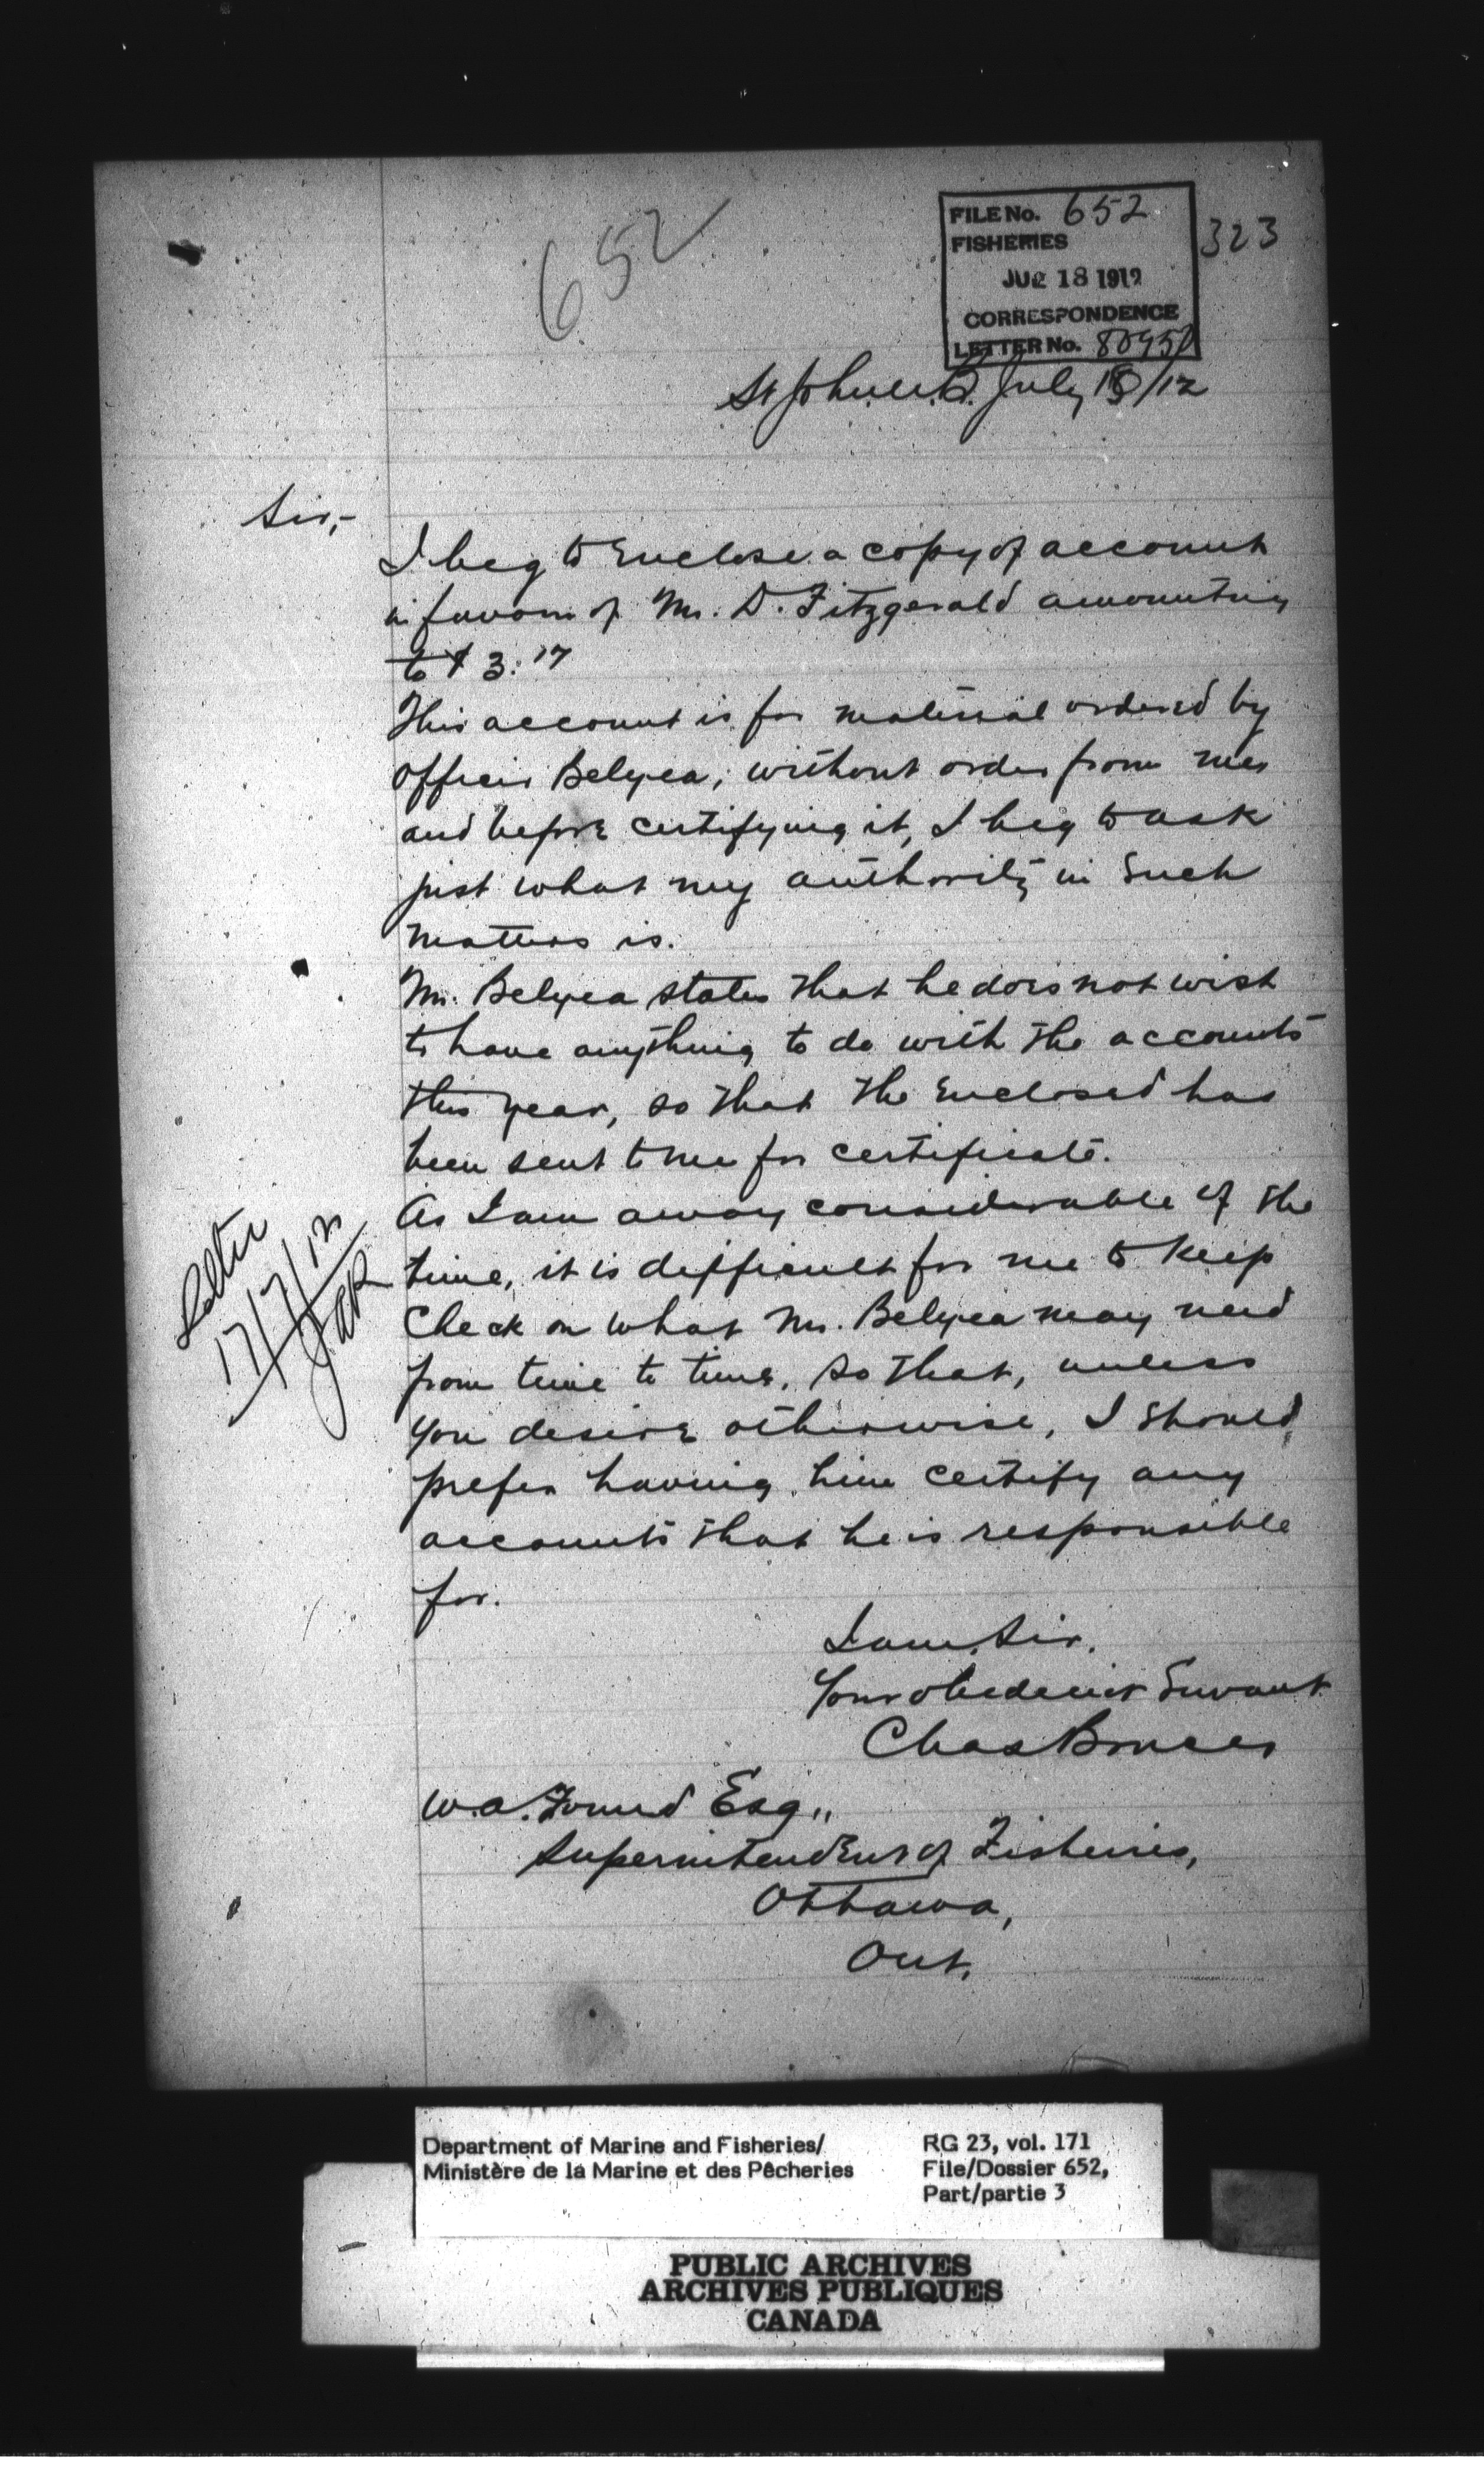 652
FILE No. 652
FISHERIES
JUL 18 1912
CORRESPONDENCE
LETTER No.
323
St John N.B. July /12
Sir,-
I beg to Enclose a copy of account
in favour of Mr. D. Fitzgerald amounting
to $3.17
This account is for material ordered by
Officer Belyea, without order from me,
and before certifying it, I beg to ask
just what my authority in such
matters is.
Mr. Belyea states that he does not wish
to have anything to do with the accounts
this year, so that the Enclosed has
been sent to me for certificate.
As I am away considerable of the
time, it is difficult for me to keep
check on what Mr. Belyea may need
from time to time, so that, unless
you desire otherwise, I should
prefer having him certify any
accounts that he is responsible
for.
Letter
17/7/12
I am, Sir,
Your obedient Servant
Chas Bruces
W.A. Found Esq.,
Superintendent of Fisheries,
Ottawa,
Ont.
Department of Marine and Fisheries/
Ministère de la Marine et des Pêcheries
RG 23, vol. 171
File/Dossier 652,
Part/partie 3
PUBLIC ARCHIVES
ARCHIVES PUBLIQUES
CANADA